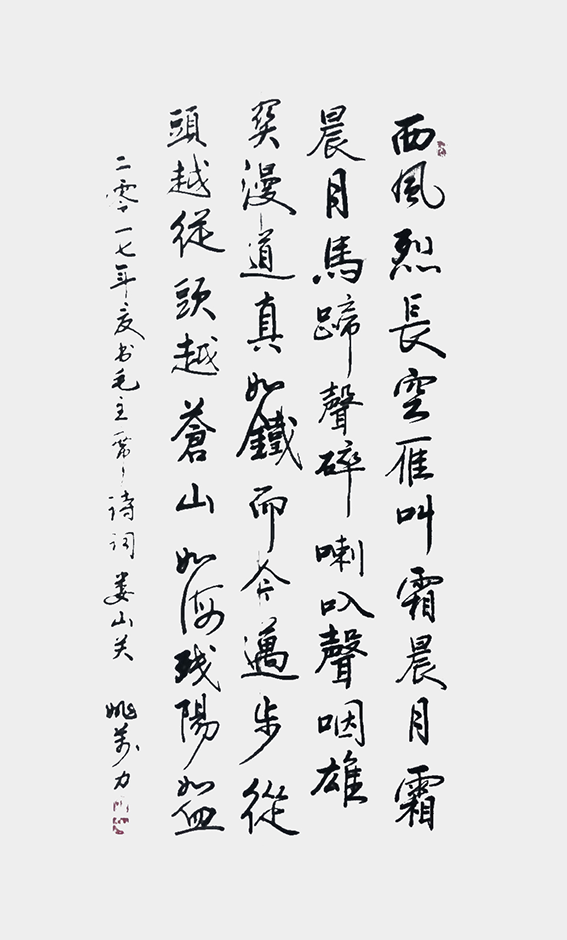 西風烈長空雁叫霜晨月霜
晨月馬蹄聲碎喇叭聲咽雄
関漫道真如鐵而今邁步從
頭越從頭越蒼山如海残陽如血
二零一七年夏书毛主席诗词娄山关 姚萬力